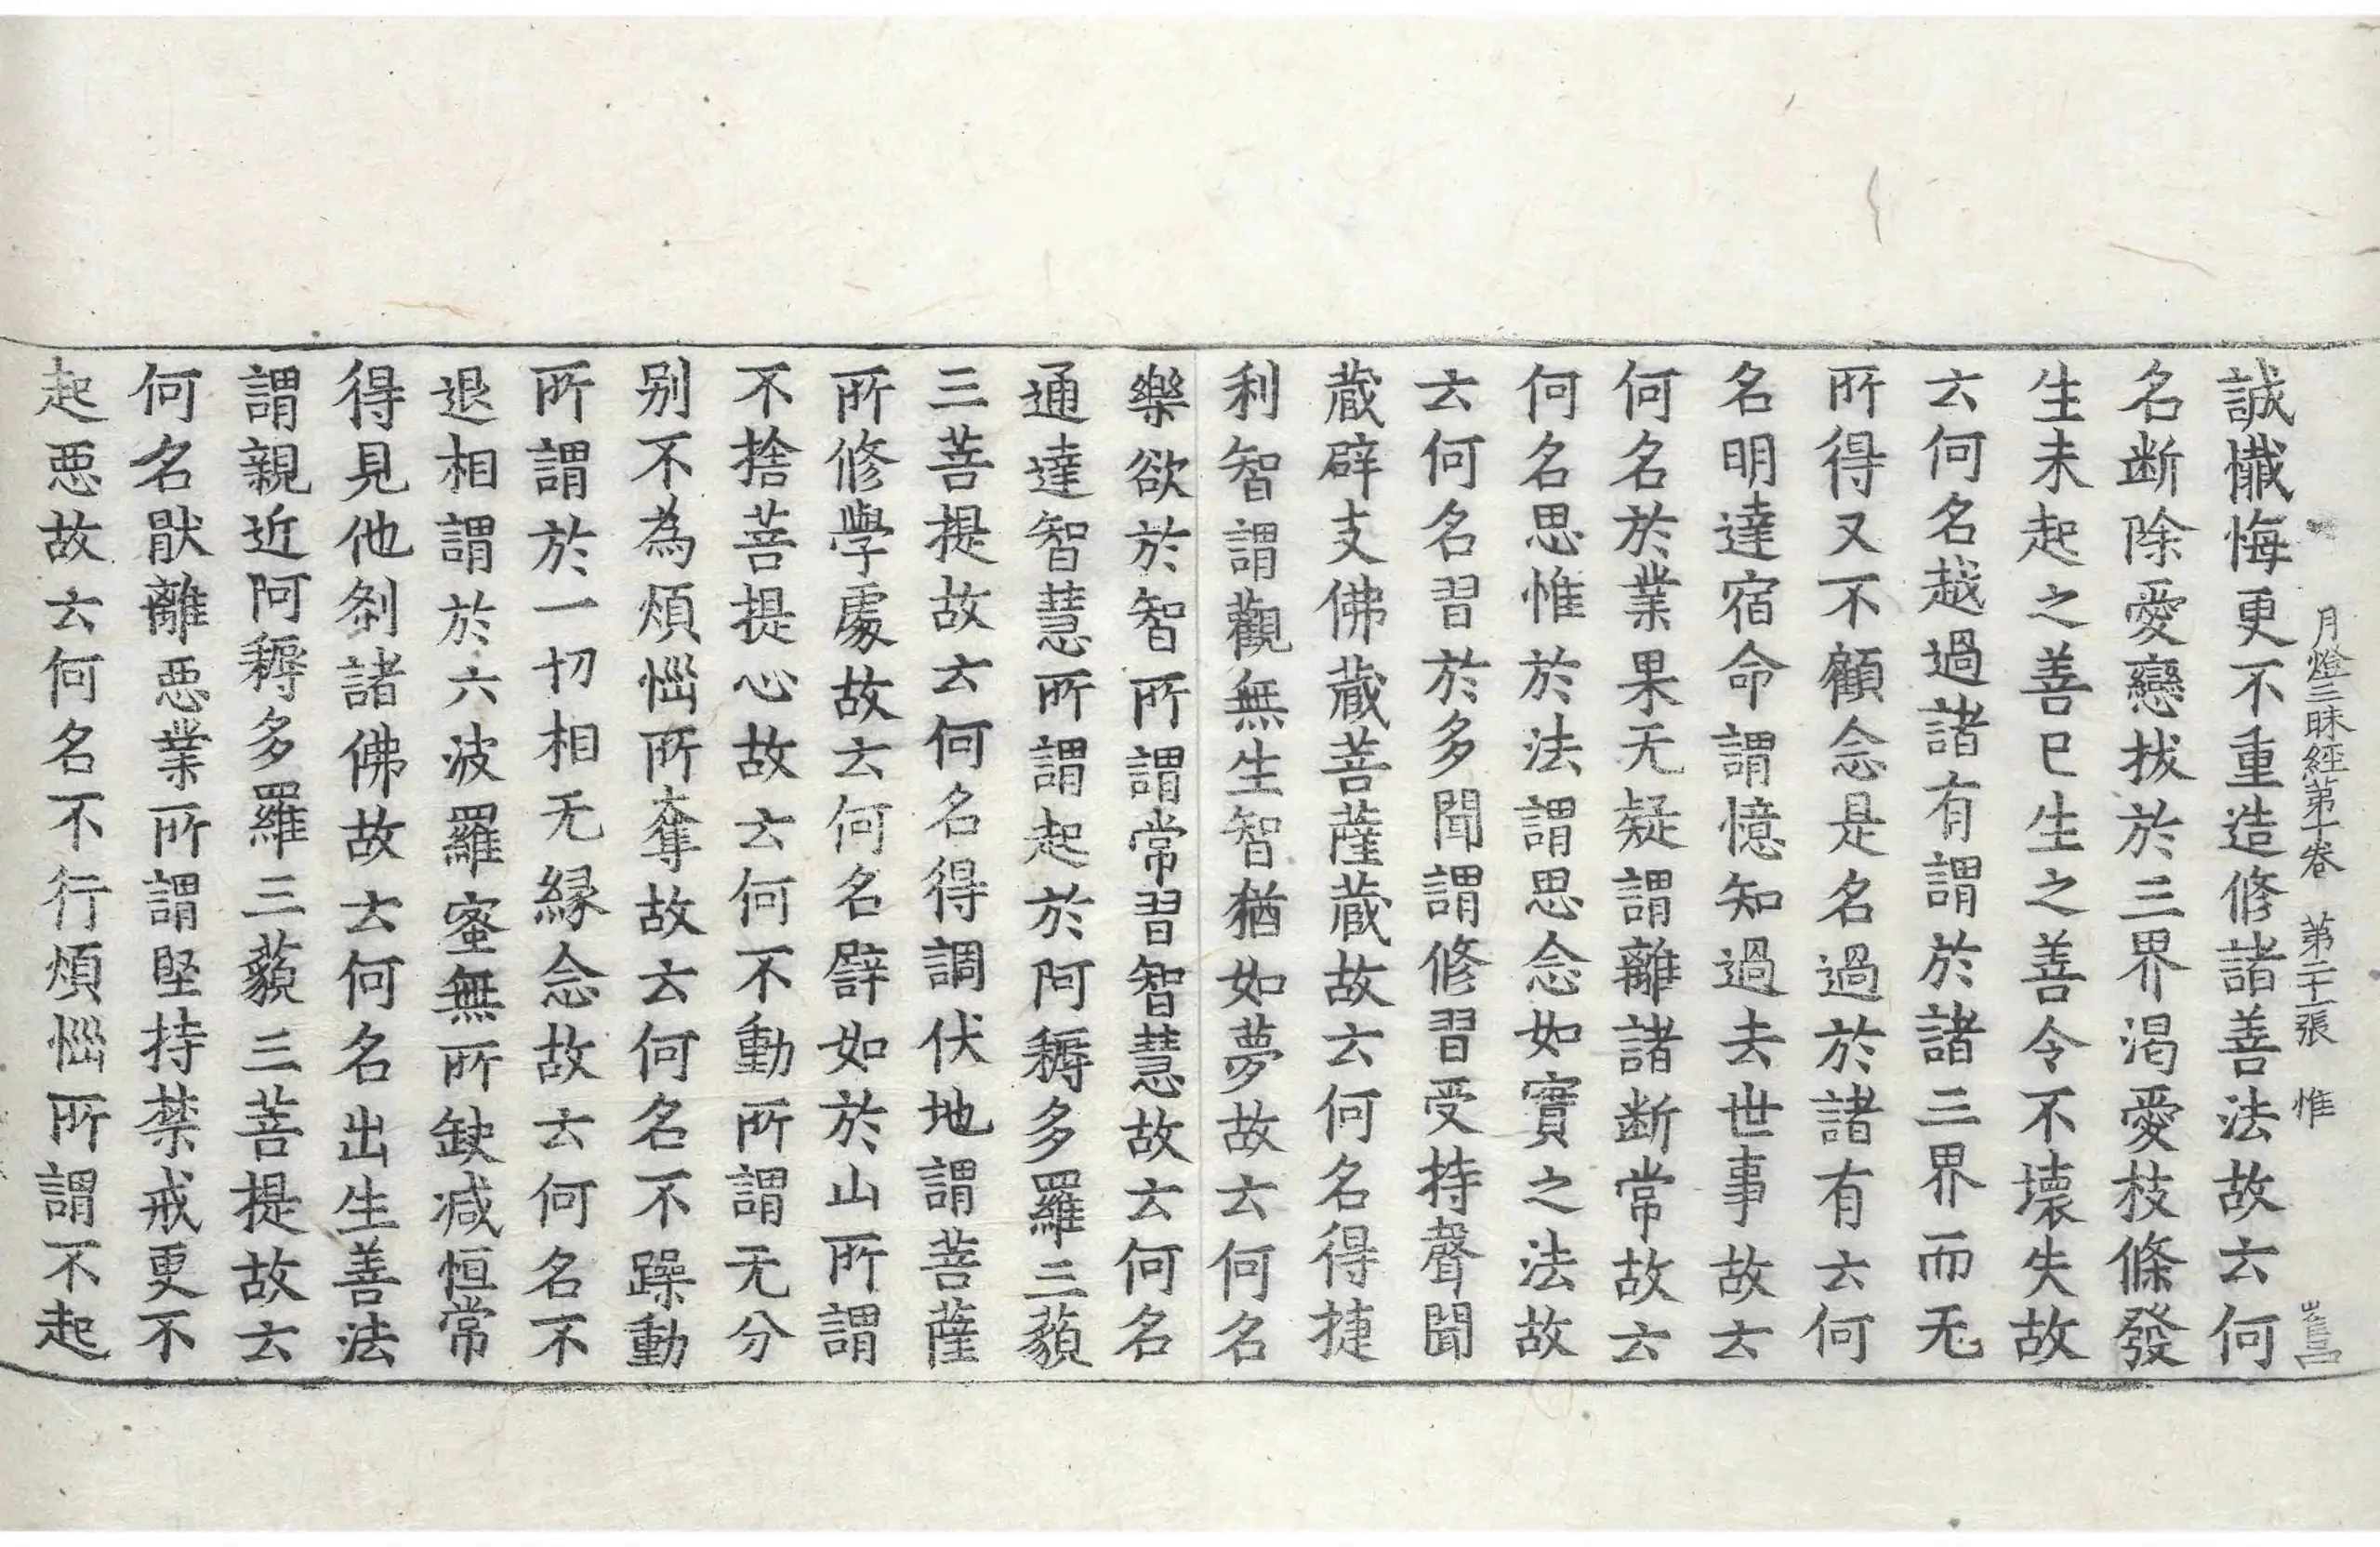 月燈三昧經第十卷　第二十一張　惟　崔昌
誠懺悔更不重造修諸善法故云何
名断除愛戀拔於三界渴愛枝條發
生未起之善已生之善令不壞失故
云何名越過諸有謂於諸三界而无
所得又不顧念是名過於諸有云何
名明達宿命謂憶知過去世事故云
何名於業果无疑謂離諸断常故云
何名思惟於法謂思念如實之法故
云何名習於多聞謂修習受持聲聞
蔵辟支佛蔵菩薩蔵故云何名得捷
利智謂觀無生智猶如夢故云何名
樂欲於智所謂常習智慧故云何名
通達智慧所謂起於阿耨多羅三藐
三菩提故云何名得調伏地謂菩薩
所修學處故云何名譬如於山所謂
不捨菩提心故云何不動所謂无分
别不為煩惱所奪故云何名不躁動
所謂於一切相无縁念故云何名不
退相謂於六波羅蜜無所缺減恒常
得見他刹諸佛故云何名出生善法
謂親近阿耨多羅三藐三菩提故云
何名猒離悪業所謂堅持禁戒更不
起悪故云何名不行煩惱所謂不起